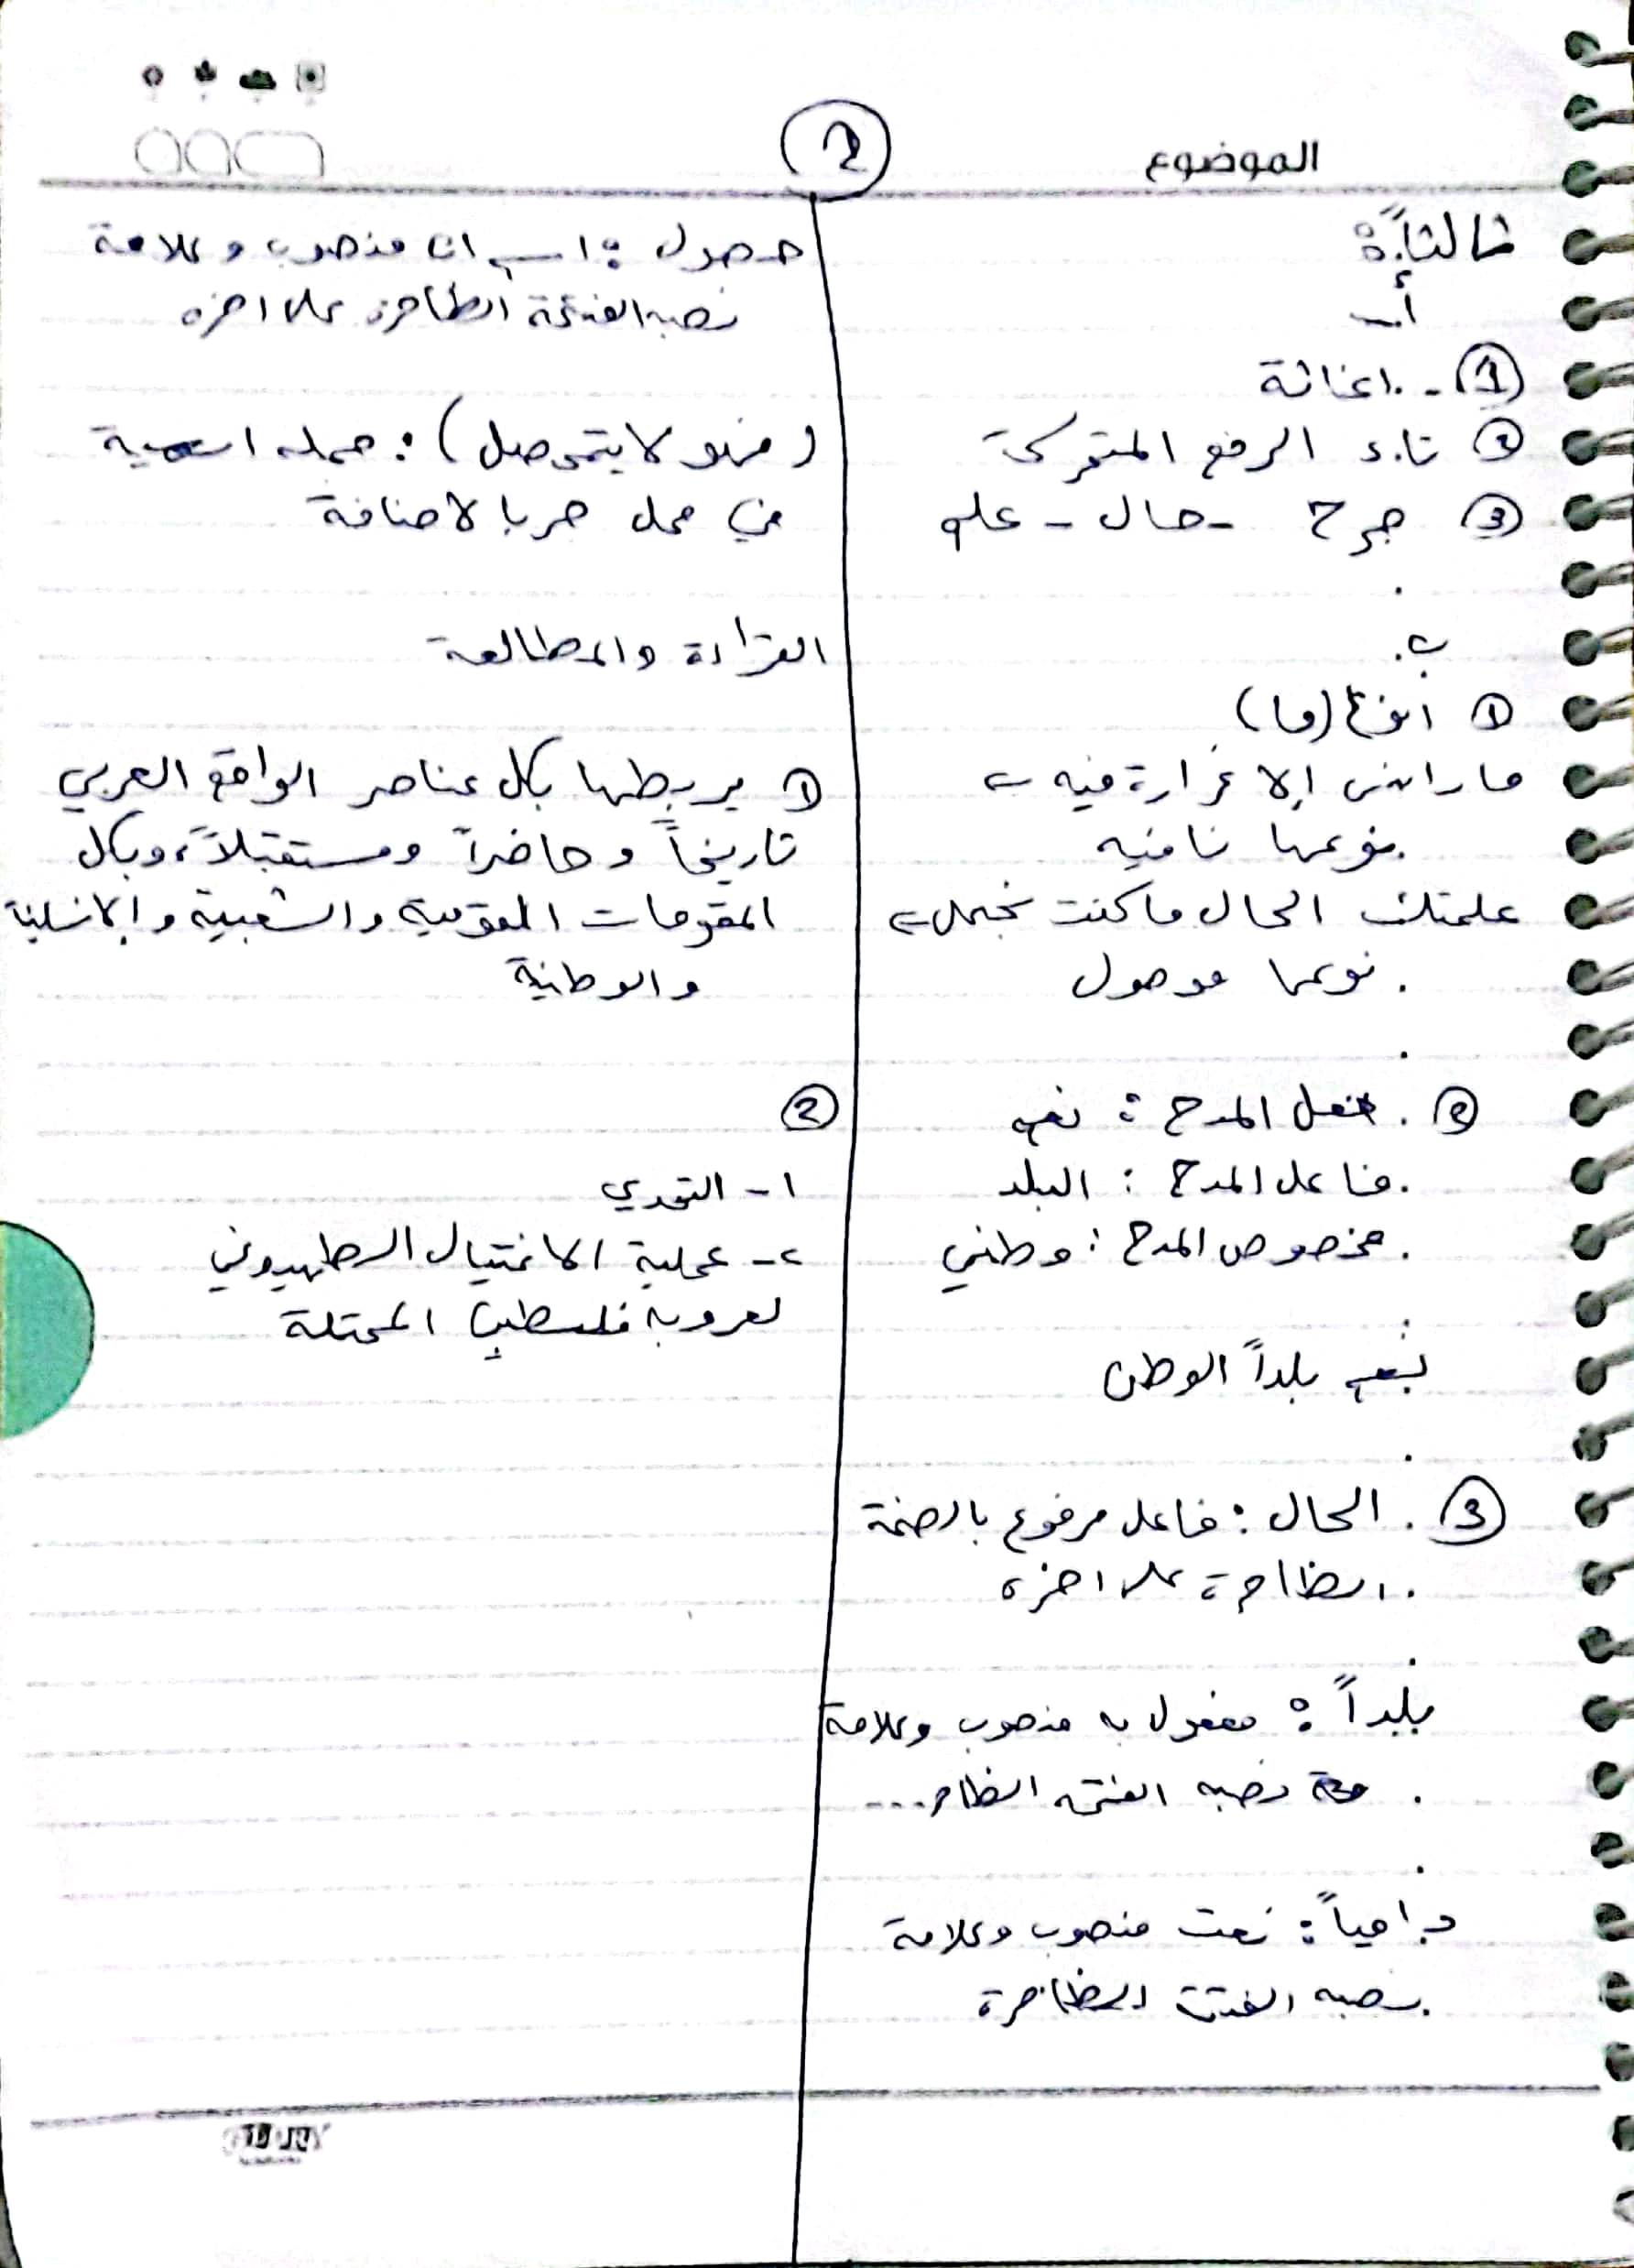 الموضوع
2
ثالثاً:
أ-
1 - اغاثة
2 تاء الرفع المتحركة
3 جرح - حال - علم
ب.
1 انواع (ما)
ما رأيتني إلا غرارة فيه
نوعها نافيه
علمتك الحال ما كنت تجهل
نوعها موصول
2 فعل المدح: نعم
فاعل المدح: البلد
مخصوص المدح: وطني
نعم بلداً الوطن
3 الحال: فاعل مرفوع بالضمة
الظاهرة على اخره
بلداً: مفعول به منصوب وعلامة
نصبه الفتحه الظاهر...
دامياً: نعت منصوب وعلامة
نصبه الفتحة الظاهرة
حصول: اسم ان منصوب وعلامة
نصبه الفتحة الظاهرة على اخره
(فهو لا يتحصل): جمله اسمية
في محل جر بالاضافة
القراءة والمطالعة
1 يربطها بكل عناصر الواقع العربي
تاريخاً وحاضراً ومستقبلاً، وبكل
المقومات القومية والشعبية والإنسانية
والوطنية
2
1- التحدي
2- عملية الاغتيال الصهيوني
لعروبه فلسطين المحتلة